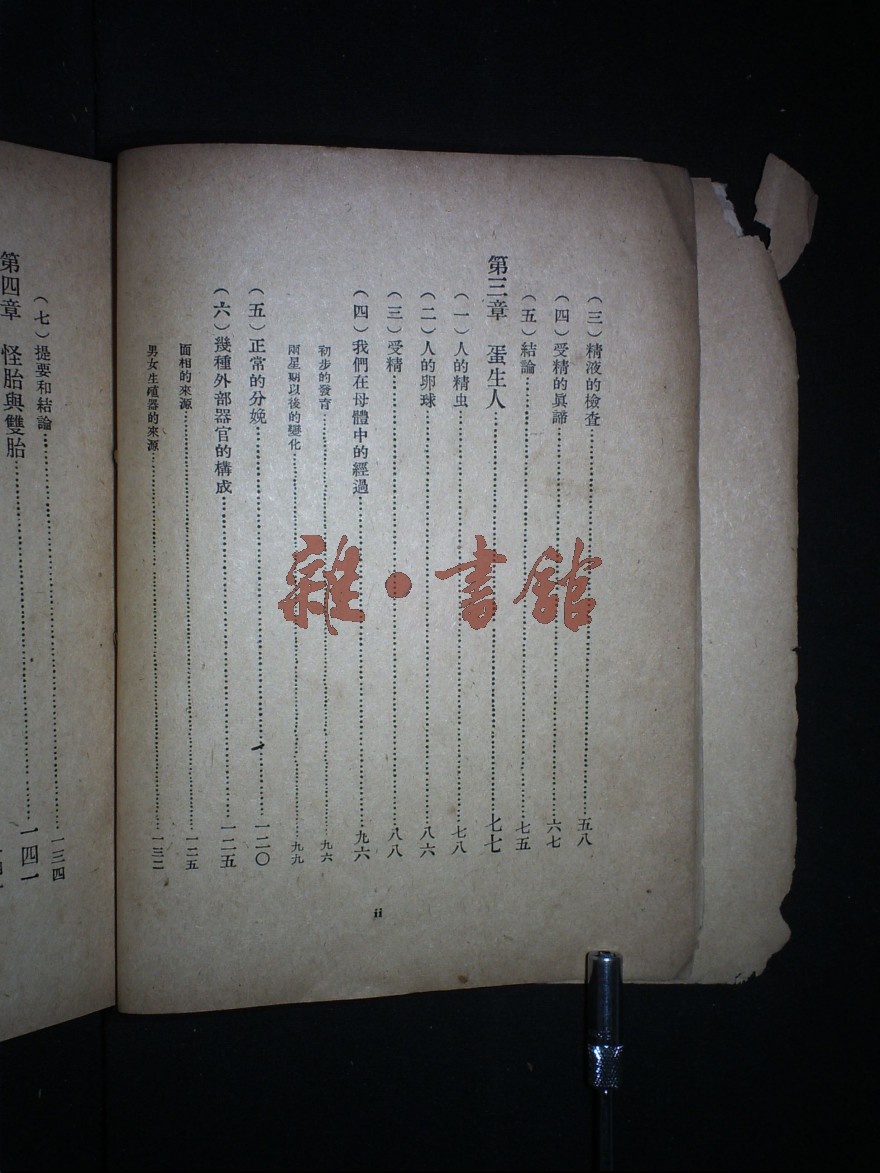 （三）精液的檢查……五八
（四）受精的眞諦……六七
（五）結論……七五
第三章 蛋生人……七七
（一）人的精虫……七八
（二）人的卵球……八六
（三）受精……八八
（四）我們在母體中的經過……九六
初步的發育……九六
兩星期以後的變化……九九
（五）正常的分娩……一二〇
（六）幾種外部器官的構成……一二五
面相的來源……一二五
男女生殖器的來源……一三二
ii
（七）提要和結論……一三四
第四章 怪胎與雙胎……一四一
雜·書館